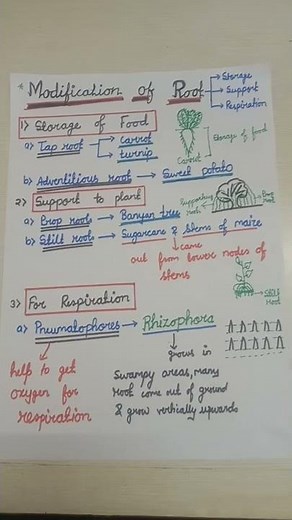 * Modification of Root → Storage
→ Support
→ Respiration
1) Storage of Food
a) Tap root → Carrot
→ turnip
Storage of food
Carrot
b) Adventitious root → Sweet potato
2) Support to plant
Supporting root
Prop root
a) Prop roots → Banyan tree
b) Stilt roots → Sugarcane & stems of maize
came
out from lower nodes of
stems
Stilt root
3) For Respiration
a) Pneumatophores → Rhizophora
grows in
help to get
oxygen for
respiration
Swampy areas, many
root come out of ground
& grow vertically upwards